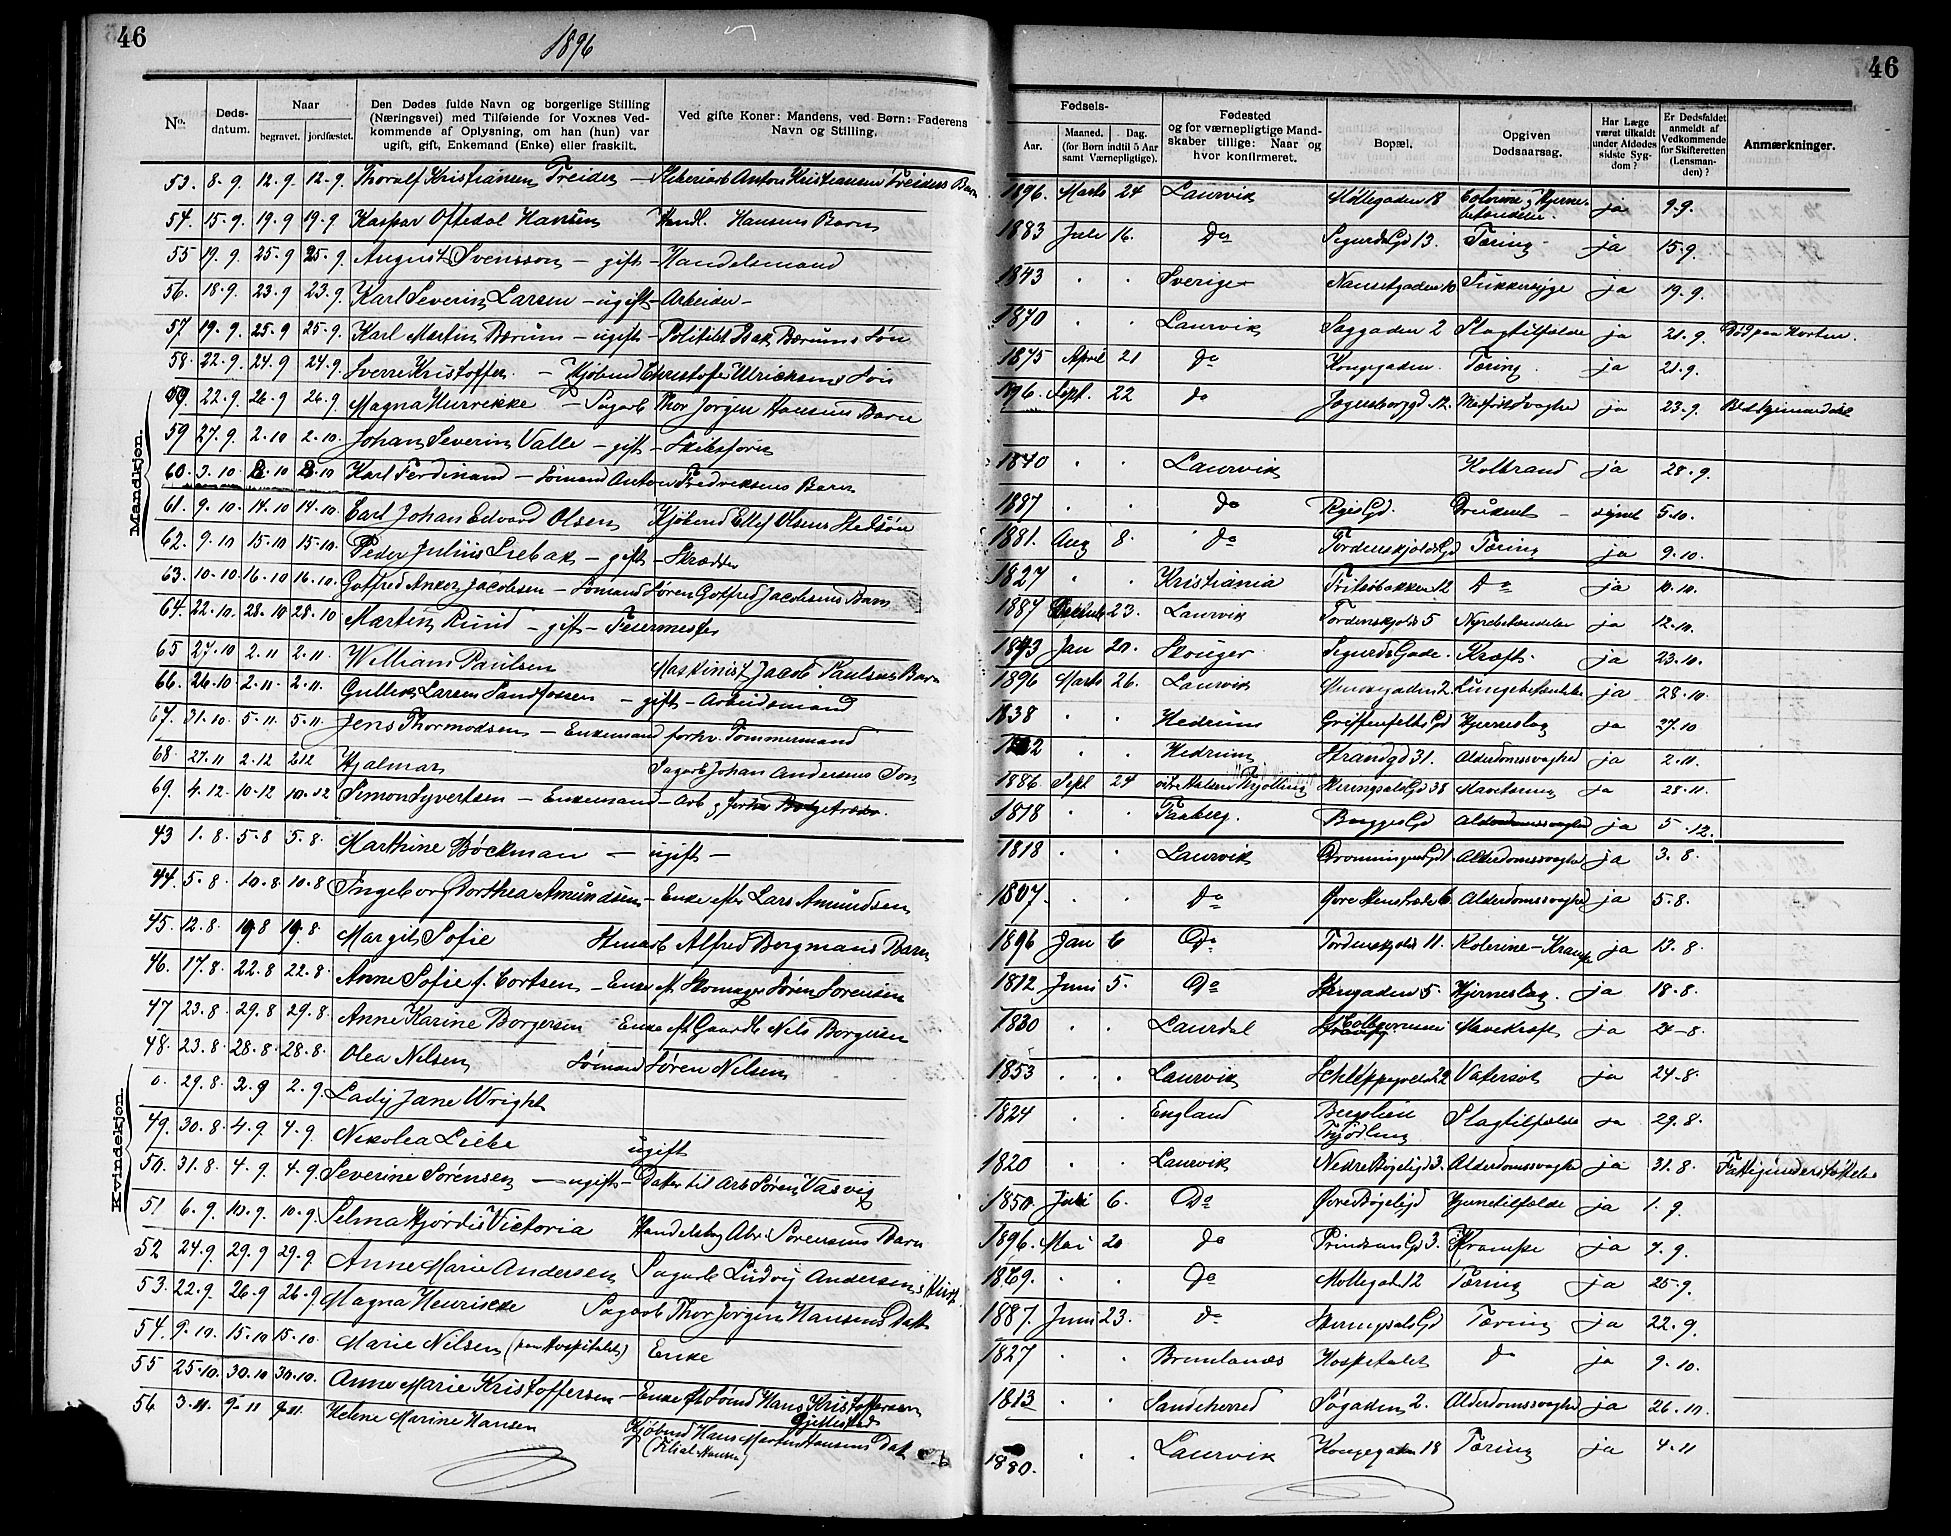 46
1896
46
No.
Døds-
datum.
Naar
begravet.
jordfæstet.
Den Dødes fulde Navn og borgerlige Stilling
(Næringsvei) med Tilføiende for Voxnes Ved-
kommende af Oplysning, om han (hun) var
ugift, gift, Enkemand (Enke) eller fraskilt.
Ved gifte Koner: Mandens, ved Børn: Faderens
Navn og Stilling.
Fødsels-
Aar.
Maaned. Dag.
(for Børn indtil 5 Aar
samt Værnepligtige).
Fødested
og for værnepligtige Mand-
skaber tillige: Naar og
hvor konfirmeret.
Bopæl.
Opgiven
Dødsaarsag.
Har Læge
været tilkaldt
under Afdødes
sidste Syg-
dom?
Er Dødsfaldet
anmeldt af
Vedkommende
for Skifteretten
(Lensman-
den)?
Anmærkninger.
Mandkjøn.
53. 8-9. 12-9. 12-9. Thoralf Kristiansen Treider - Anton Kristiansen Treiders Barn
54. 15-9. 19-9 19-9. Kaspar Oftedal Hansen Handl. Hansens Barn
55 19.9. 25-9 25-9. August Svensson - gift - Handelsmand
56. 18-9. 23-9 23-9. Karl Severin Larsen - ugift - Arbeider -
57 19-9. 25-9 25-9. Karl Martin Bærum - ugift - Politibt Isak Bærums Søn
58. 22-9. 24-9 24-9. Sverre Kristoffer. - Kjøbmd Christofer Ulriksens Søn
59. 22-9. 26-9 26-9. Magna Henrikke - Sagarb Thor Jørgen Hansens Barn
59 27-9. 2-10 2-10. Johan Severin Valle - gift - Skibsfører
60. 3-10 8-10 8-10 Karl Ferdinand - Sømand Anton Fredriksens Barn
61. 9-10 14-10 14-10. Carl Johan Edvard Olsen Kjøbmd Ellef Olsens Stedsøn
62. 9-10 15-10 15-10. Peder Julius Liebak - gift - Skrædder
63. 10-10 16-10 16-10. Gotfred Anker Jacobsen - Sømand Søren Gotfred Jacobsens Barn
64. 22-10. 28-10 28-10 Martin Rund - gift - Feiermester
65 27-10 2-11 2-11. William Paulsen Maskinist Jacob Paulsens Barn
66. 26-10 2-11. 2-11. Gullik Larsen Sandfossen - gift - Arbeidsmand
67. 31-10. 5-11. 5-11. Jens Thormodsen - Enkemand forhv. Tømmermand
68. 27-11 2-12 2-12 Hjalmar Sagarb Johan Andersens Søn
69. 4-12. 10-12 10-12 Simon Syvertsen - Enkemand - Arb
Kvindekjøn.
43 1-8. 5-8 5-8. Marthine Bøckman - ugift -
44. 5-8. 10-8. 10-8 Ingeborg Dorthea Amundsen - Enke efter Lars Amundsen
45. 12-8. 19-8 19-8. Margit Sofie Alfred Borgmans Barn
46. 17-8. 22-8 22-8. Anne Sofie f. Cortsen - Enke eft Skomager Søren Sørensen
47 23-8. 29-8 29-8. Anne Karine Borgersen Enke eft Gaardb Nils Borgersen
48. 23-8. 28-8. 28-8. Olea Nilsen Sømand Søren Nilsen
0. 29.8. 2-9 2-9. Lady Jane Wright
49. 30.8. 4-9. 4-9. Nikolea Liebe ugift
50. 31.8. 4-9. 4-9. Severine Sørensen - ugift - Datter til Arb Søren Vasvig
51 6-9. 10-9. 10-9. Selma Hjørdis Victoria Handelsbg Abr. Sørensens Barn
52 24.9. 29-9 29-9. Anne Marie Andersen Sagarb Ludvig Andersens Hustr.
53. 22.9. 26-9 26-9 Magna Henrikke Sagarb Thor Jørgen Hansens Datt
54. 9-10. 15-10 15-10. Marie Nilsen (paa Hospitalet) Enke
55 25-10. 30-10 30-10. Anne Marie Kristoffersen - Enke eft Sømd Hans Kristoffersen
Gjellestad
56 3-11. 9-11 9-11. Helene Marine Hansen Kjøbmd Hans Martin Hansens Datt
1896. Marts 24 Laurvik Møllegaden 18 ja 9-9.
1883 Juli 16. Do Sigurds Gd 13. Tæring - ja 15-9.
1843 Sverige Nansetgaden 10 Sukkersyge ja 19-9.
1870 Laurvik Saggaden 2 Slagtilfælde ja 21-9. Død paa Horten.
1875 April 21 do Kongegaden. Tæring. ja 21-9.
1896. Sept. 22 do Jegersborggd 12. Medfødt Svaghed ja 23.9.
1840 Laurvik Holbrand ja 28-9.
1887 do Druknet - 5-10.
1881. Aug 8. do Tordenskjolds Gd Tæring ja 9-10.
1827 Kristiania Fritsøbakken 12 Do ja 10-10.
1887 23. Laurvik Tordenskjolds 5 Nyrebetændelse ja 12-10.
1843 Jan 20. Skouger. Sigurds Gade. Kræft. ja 23.10.
1896 Marts 26. Laurvik Lungebetændelse ja 28-10.
1838 Hedrum Griffenfelts Gd Hjerneslag ja 27.10
Hedrum Strandgd 31. Alderdomssvaghed ja 2-11.
1886 Sept 24 Tjølling Herregaards Gd 38 ja 28-11.
1818 Faaberg. Brygges Gd Alderdomssvaghed ja 5-12.
1818 Laurvik Dronningens Gd Alderdomssvaghed ja 3.8.
1807. Do Øvre 6. Alderdomssvaghed ja 5-8.
1896 Jan 6 Do Tordenskjolds 11. Kolerine - Krampe ja 13-8.
1812 Juni 5. Do Stengaden 5. Hjerneslag. ja 18-8.
1830 Laurdal Mavekræft ja 24-8.
1853 Laurvik 22 Vatersot ja 24-8.
1824 England Bergslien
Tjødling Slagtilfælde ja 29.8.
1820 Laurvik Nedre Bøgeligd 3. Alderdomssvaghed ja 31.8. Fattigunderstøttelse
1850. Juli 6. Do Øvre Bøgeligd Hjernetilfælde ja 1.9.
1896. Mai 20 do Prindsens Gd 3. Krampe ja 7.9.
1869. Do Møllegad 12 Tæring ja 25-9.
1887. Juni 23. do Herregaards Gd Tæring ja 22.9.
1827 Brunlanæs Hospitalet do ja 9-10.
1813 Sandeherred Søgaden 2. Alderdomssvaghed ja 26-10.
1880. Laurvik Kongegaden 18 Tæring ja 4-11